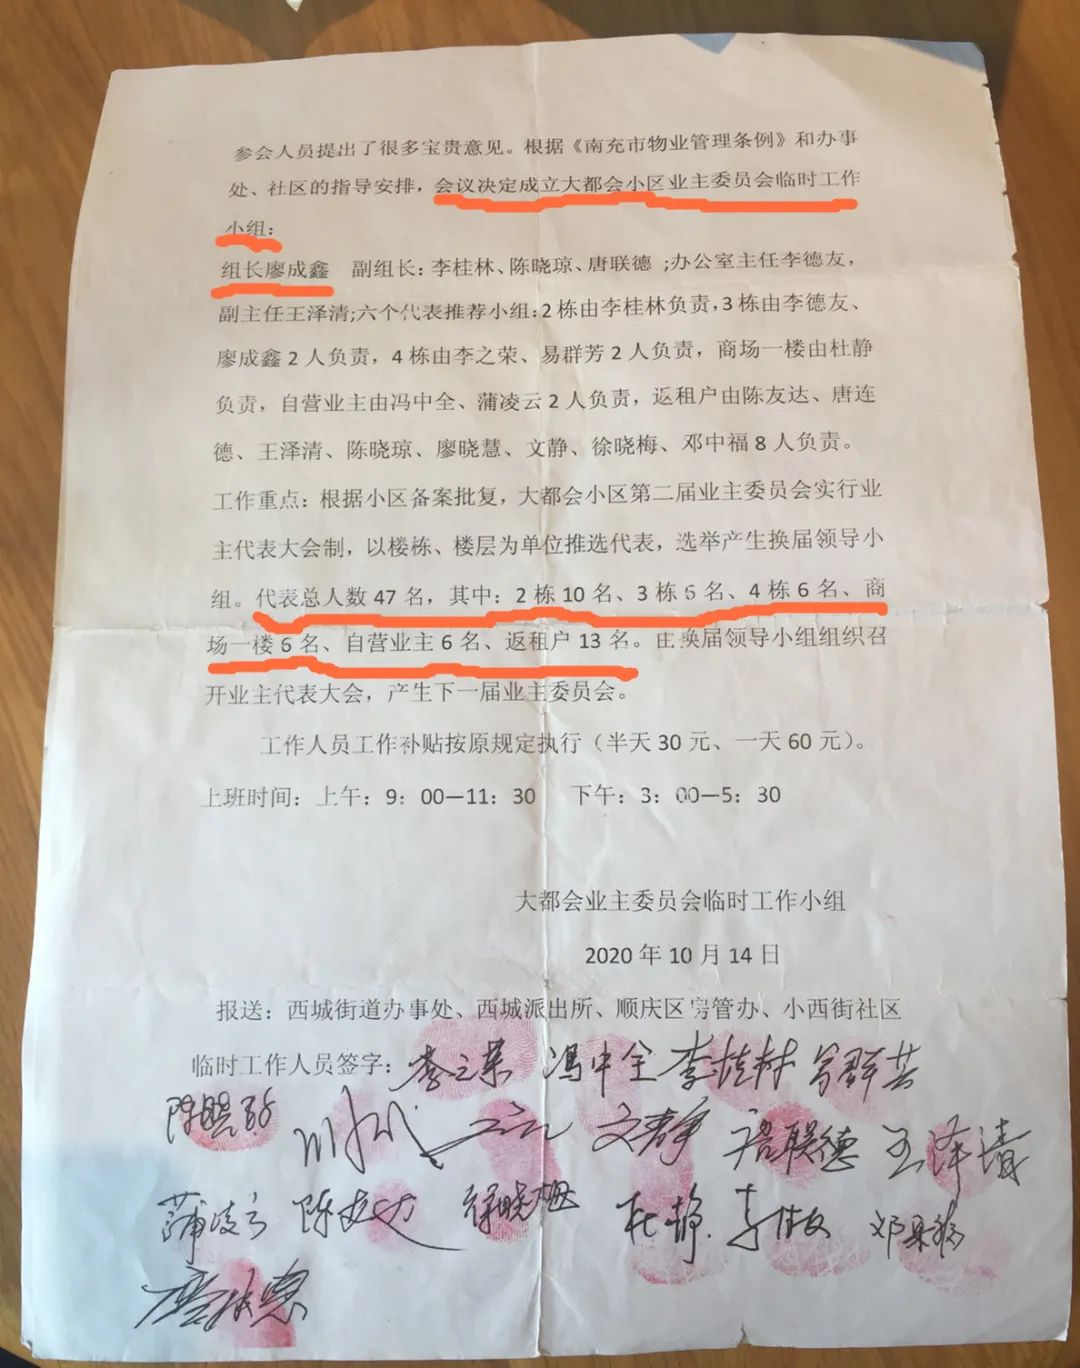 参会人员提出了很多宝贵意见。根据《南充市物业管理条例》和办事
处、社区的指导安排，会议决定成立大都会小区业主委员会临时工作
小组：
组长廖成鑫 副组长：李桂林、陈晓琼、唐联德 ;办公室主任李德友，
副主任王泽清;六个代表推荐小组：2栋由李桂林负责，3栋由李德友、
廖成鑫2人负责，4栋由李之荣、易群芳2人负责，商场一楼由杜静
负责，自营业主由冯中全、蒲凌云2人负责，返租户由陈友达、唐连
德、王泽清、陈晓琼、廖晓慧、文静、徐晓梅、邓中福8人负责。
工作重点：根据小区备案批复，大都会小区第二届业主委员会实行业
主代表大会制，以楼栋、楼层为单位推选代表，选举产生换届领导小
组。代表总人数47名，其中：2栋10名、3栋6名、4栋6名、商
场一楼6名、自营业主6名、返租户13名。由换届领导小组组织召
开业主代表大会，产生下一届业主委员会。
工作人员工作补贴按原规定执行（半天30元、一天60元）。
上班时间：上午：9：00—11：30 下午：3：00—5：30
大都会业主委员会临时工作小组
2020年10月14日
报送：西城街道办事处、西城派出所、顺庆区房管办、小西街社区
临时工作人员签字：李之荣 冯中全 李桂林
文静 唐联德 王泽清
蒲凌云 陈友达 徐晓梅 杜静